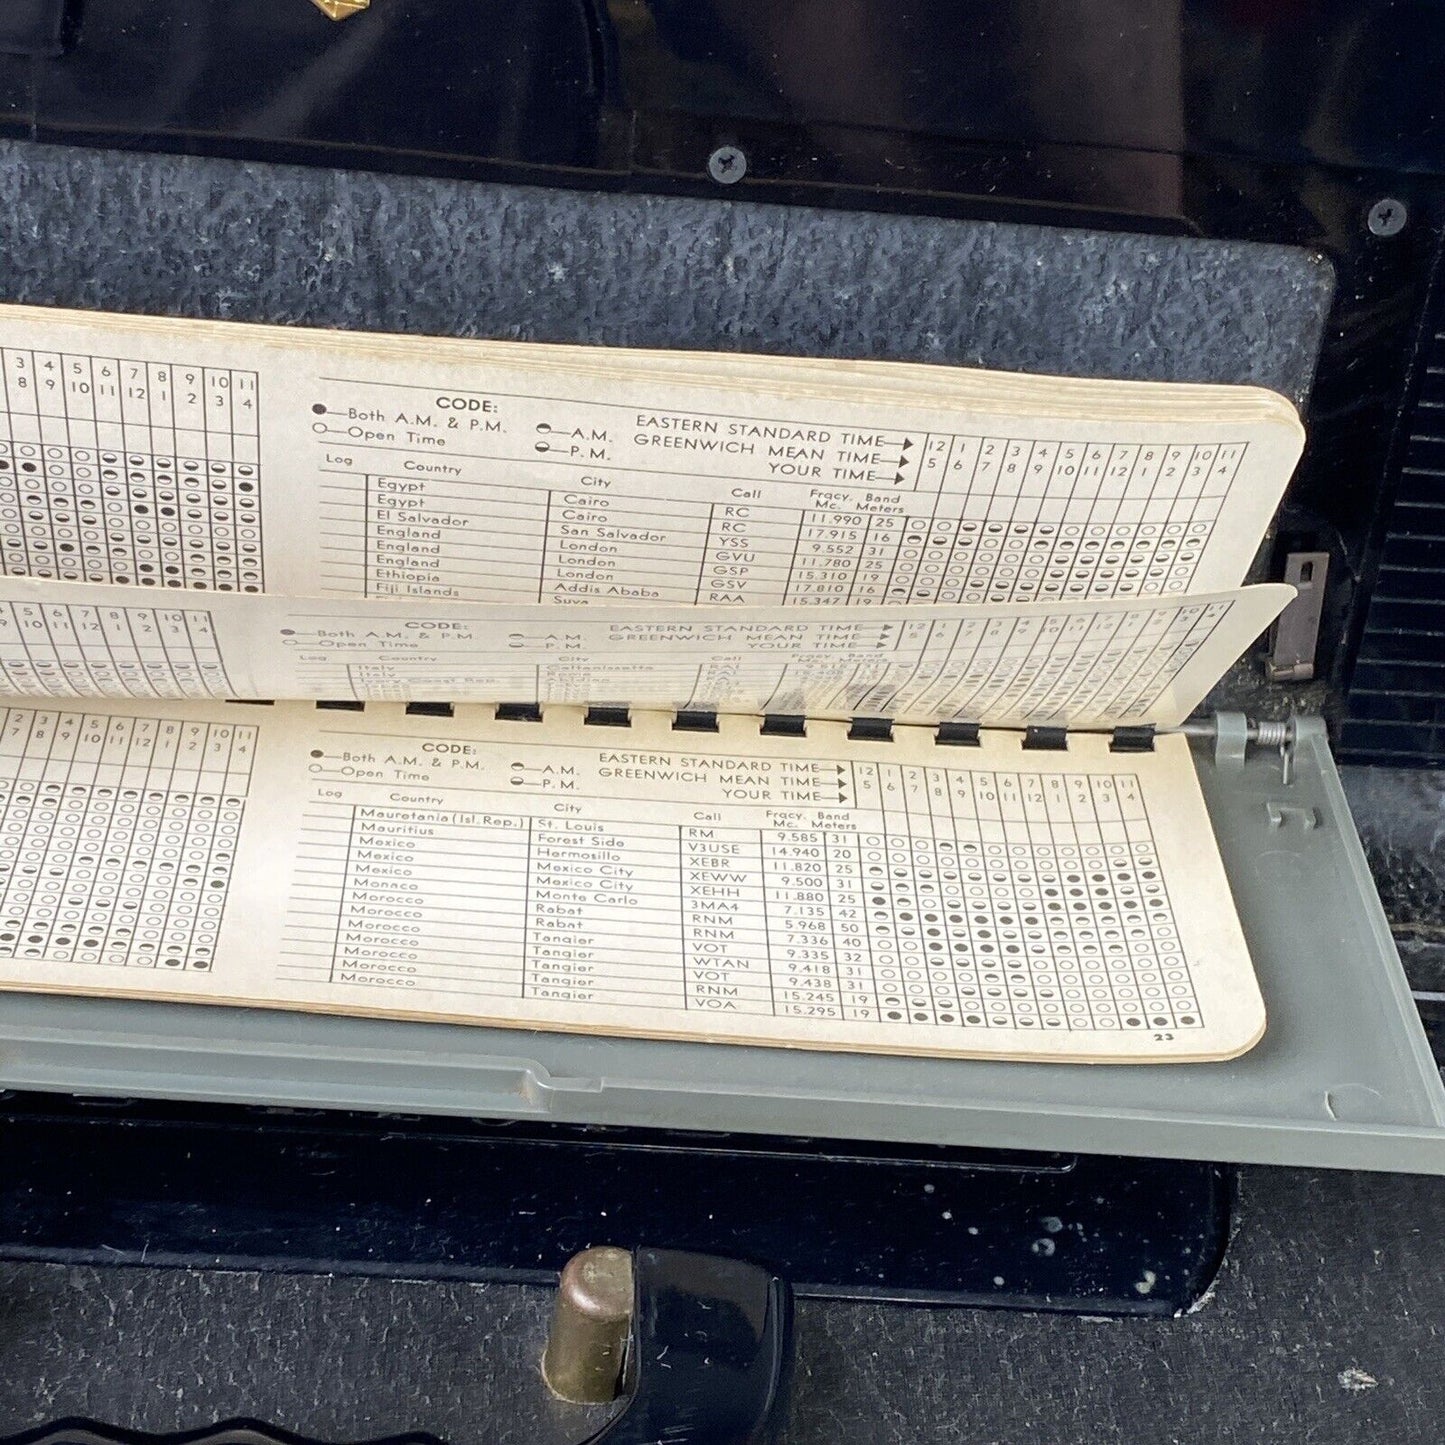 3 4 5 6 7 8 9 10 11
8 9 10 11 12 1 2 3 4
CODE:
Both A.M. & P.M. A.M. EASTERN STANDARD TIME 12 1 2 3 4 5 6 7 8 9 10 11
Open Time P.M. GREENWICH MEAN TIME 5 6 7 8 9 10 11 12 1 2 3 4
YOUR TIME
Log Country City Call Frqcy. Mc. Band Meters
Egypt Cairo RC 11.990 25
Egypt Cairo RC 17.915 16
El Salvador San Salvador YSS 9.552 31
England London GVU 11.780 25
England London GSP 15.310 19
England London GSV 17.810 16
Ethiopia Addis Ababa RAA 15.347 19
Fiji Islands Suva
4 5 6 7 8 9 10 11
9 10 11 12 1 2 3 4
CODE:
Both A.M. & P.M. A.M. EASTERN STANDARD TIME 12 1 2 3 4 5 6 7 8 9 10 11
Open Time P.M. GREENWICH MEAN TIME 5 6 7 8 9 10 11 12 1 2 3 4
YOUR TIME
Log Country City Call Frqcy. Mc. Band Meters
Italy Caltanissetta RAI
Italy Rome
Ivory Coast Rep.
2 3 4 5 6 7 8 9 10 11
7 8 9 10 11 12 1 2 3 4
CODE:
Both A.M. & P.M. A.M. EASTERN STANDARD TIME 12 1 2 3 4 5 6 7 8 9 10 11
Open Time P.M. GREENWICH MEAN TIME 5 6 7 8 9 10 11 12 1 2 3 4
YOUR TIME
Log Country City Call Frqcy. Mc. Band Meters
Mauretania (Isl. Rep.) St. Louis RM 9.585 31
Mauritius Forest Side V3USE 14.940 20
Mexico Hermosillo XEBR 11.820 25
Mexico Mexico City XEWW 9.500 31
Mexico Mexico City XEHH 11.880 25
Monaco Monte Carlo 3MA4 7.135 42
Morocco Rabat RNM 5.968 50
Morocco Rabat RNM 7.336 40
Morocco Tangier VOT 9.335 32
Morocco Tangier WTAN 9.418 31
Morocco Tangier VOT 9.438 31
Morocco Tangier RNM 15.245 19
Morocco Tangier VOA 15.295 19
23